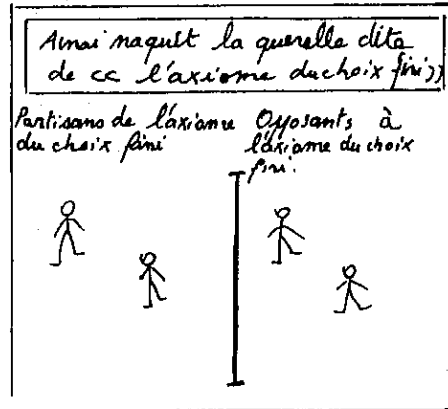 Ainsi naquit la querelle dite
de << l'axiome du choix fini >>
Partisans de l'axiome
du choix fini
Oposants à
l'axiome du choix
fini.